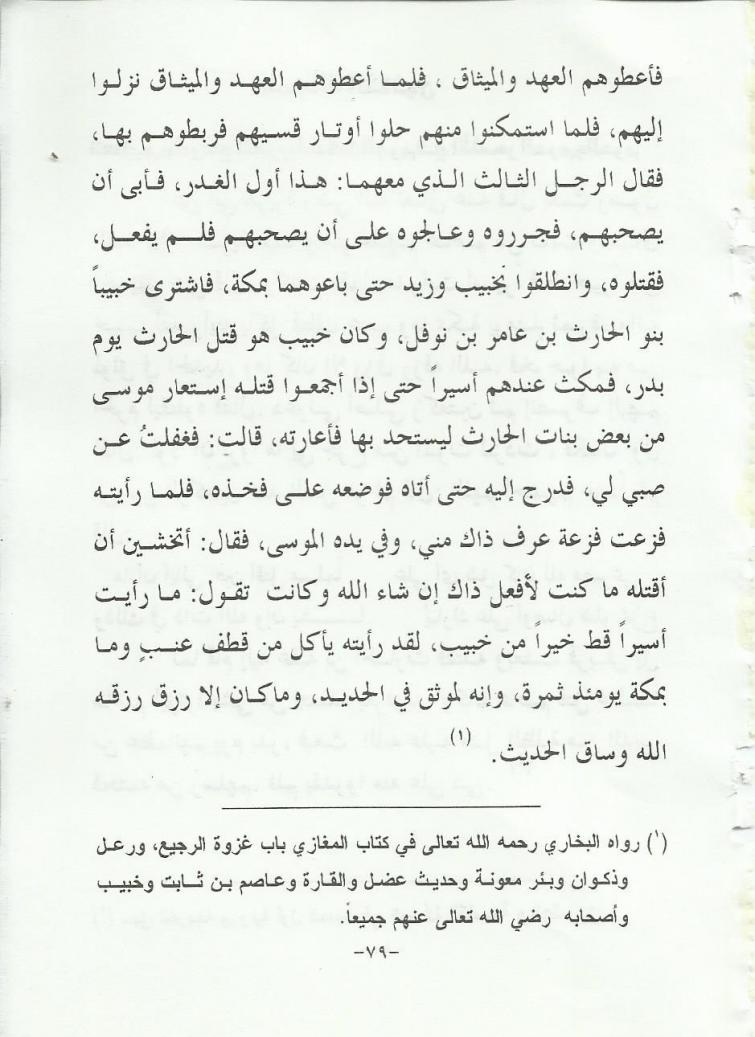 فأعطوهم العهد والميثاق ، فلما أعطوهم العهد والميثاق نزلوا
إليهم، فلما استمكنوا منهم حلوا أوتار قسيهم فربطوهم بها،
فقال الرجل الثالث الذي معهما: هذا أول الغدر، فأبى أن
يصحبهم، فجرروه وعالجوه على أن يصحبهم فلم يفعل،
فقتلوه، وانطلقوا بخبيب وزيد حتى باعوهما بمكة، فاشترى خبيباً
بنو الحارث بن عامر بن نوفل، وكان خبيب هو قتل الحارث يوم
بدر، فمكث عندهم أسيراً حتى إذا أجمعوا قتله إستعار موسى
من بعض بنات الحارث ليستحد بها فأعارته، قالت: فغفلتُ عن
صبي لي، فدرج إليه حتى أتاه فوضعه على فخذه، فلما رأيته
فزعت فزعة عرف ذاك مني، وفي يده الموسى، فقال: أتخشين أن
أقتله ما كنت لأفعل ذاك إن شاء الله وكانت تقول: ما رأيت
أسيراً قط خيراً من خبيب، لقد رأيته يأكل من قطف عنبٍ وما
بمكة يومئذ ثمرة، وإنه لموثق في الحديد، وماكان إلا رزق رزقه
الله وساق الحديث. (١)
(١) رواه البخاري رحمه الله تعالى في كتاب المغازي باب غزوة الرجيع، ورعل
وذكوان وبئر معونة وحديث عضل والقارة وعاصم بن ثابت وخبيب
وأصحابه رضي الله تعالى عنهم جميعاً.
-٧٩-